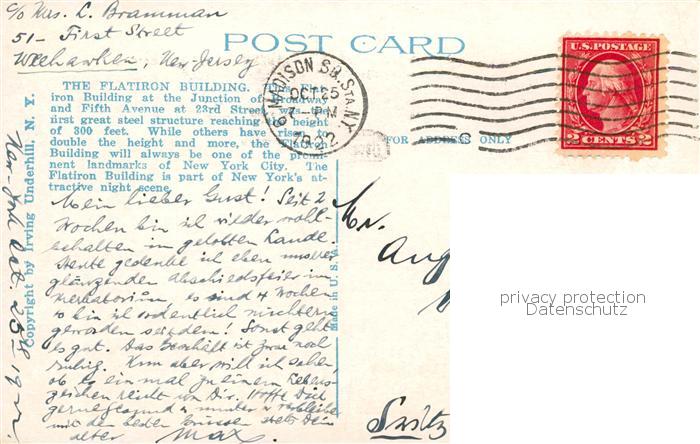 c/o Mrs. L. Bramman
51 - First Street
Weehawken, New-Jersey
POST CARD
THE FLATIRON BUILDING.
iron Building at the Junction of Broadway
and Fifth Avenue at 23rd Street was the
first great steel structure reaching a height
of 300 feet. While others have risen
double the height and more, the Flatiron
Building will always be one of the promi-
nent landmarks of New York City. The
Flatiron Building is part of New York's at-
tractive night scene.
MADISON SQ. STA. N.Y.
OCT 25
7-PM
1922
U.S. POSTAGE
2 CENTS 2
FOR ADDRESS ONLY
Copyright by Irving Underhill, N. Y.
New-York Oct. 25th 1922
Made in U. S. A.
Mein lieber Gust! Seit 2
Wochen bin ich wieder wohl-
behalten im gelobten Lande.
Heute gedenke ich eben unserer
glänzenden Abschiedsfeier im
es sind 4 Wochen
bin ich ordentlich nüchtern
geworden seitdem! Sonst geht
es gut. Das Geschäft ist zwar noch
ruhig. Nun aber will ich sehen
ob es einmal zu einem Lebens-
zeichen reicht von Dir. Hoffe Dich
gesund & munter & verbleibe
mit den besten Grüssen stets Dein
alter Max.
Mr.
Aug
Switz
privacy protection
Datenschutz